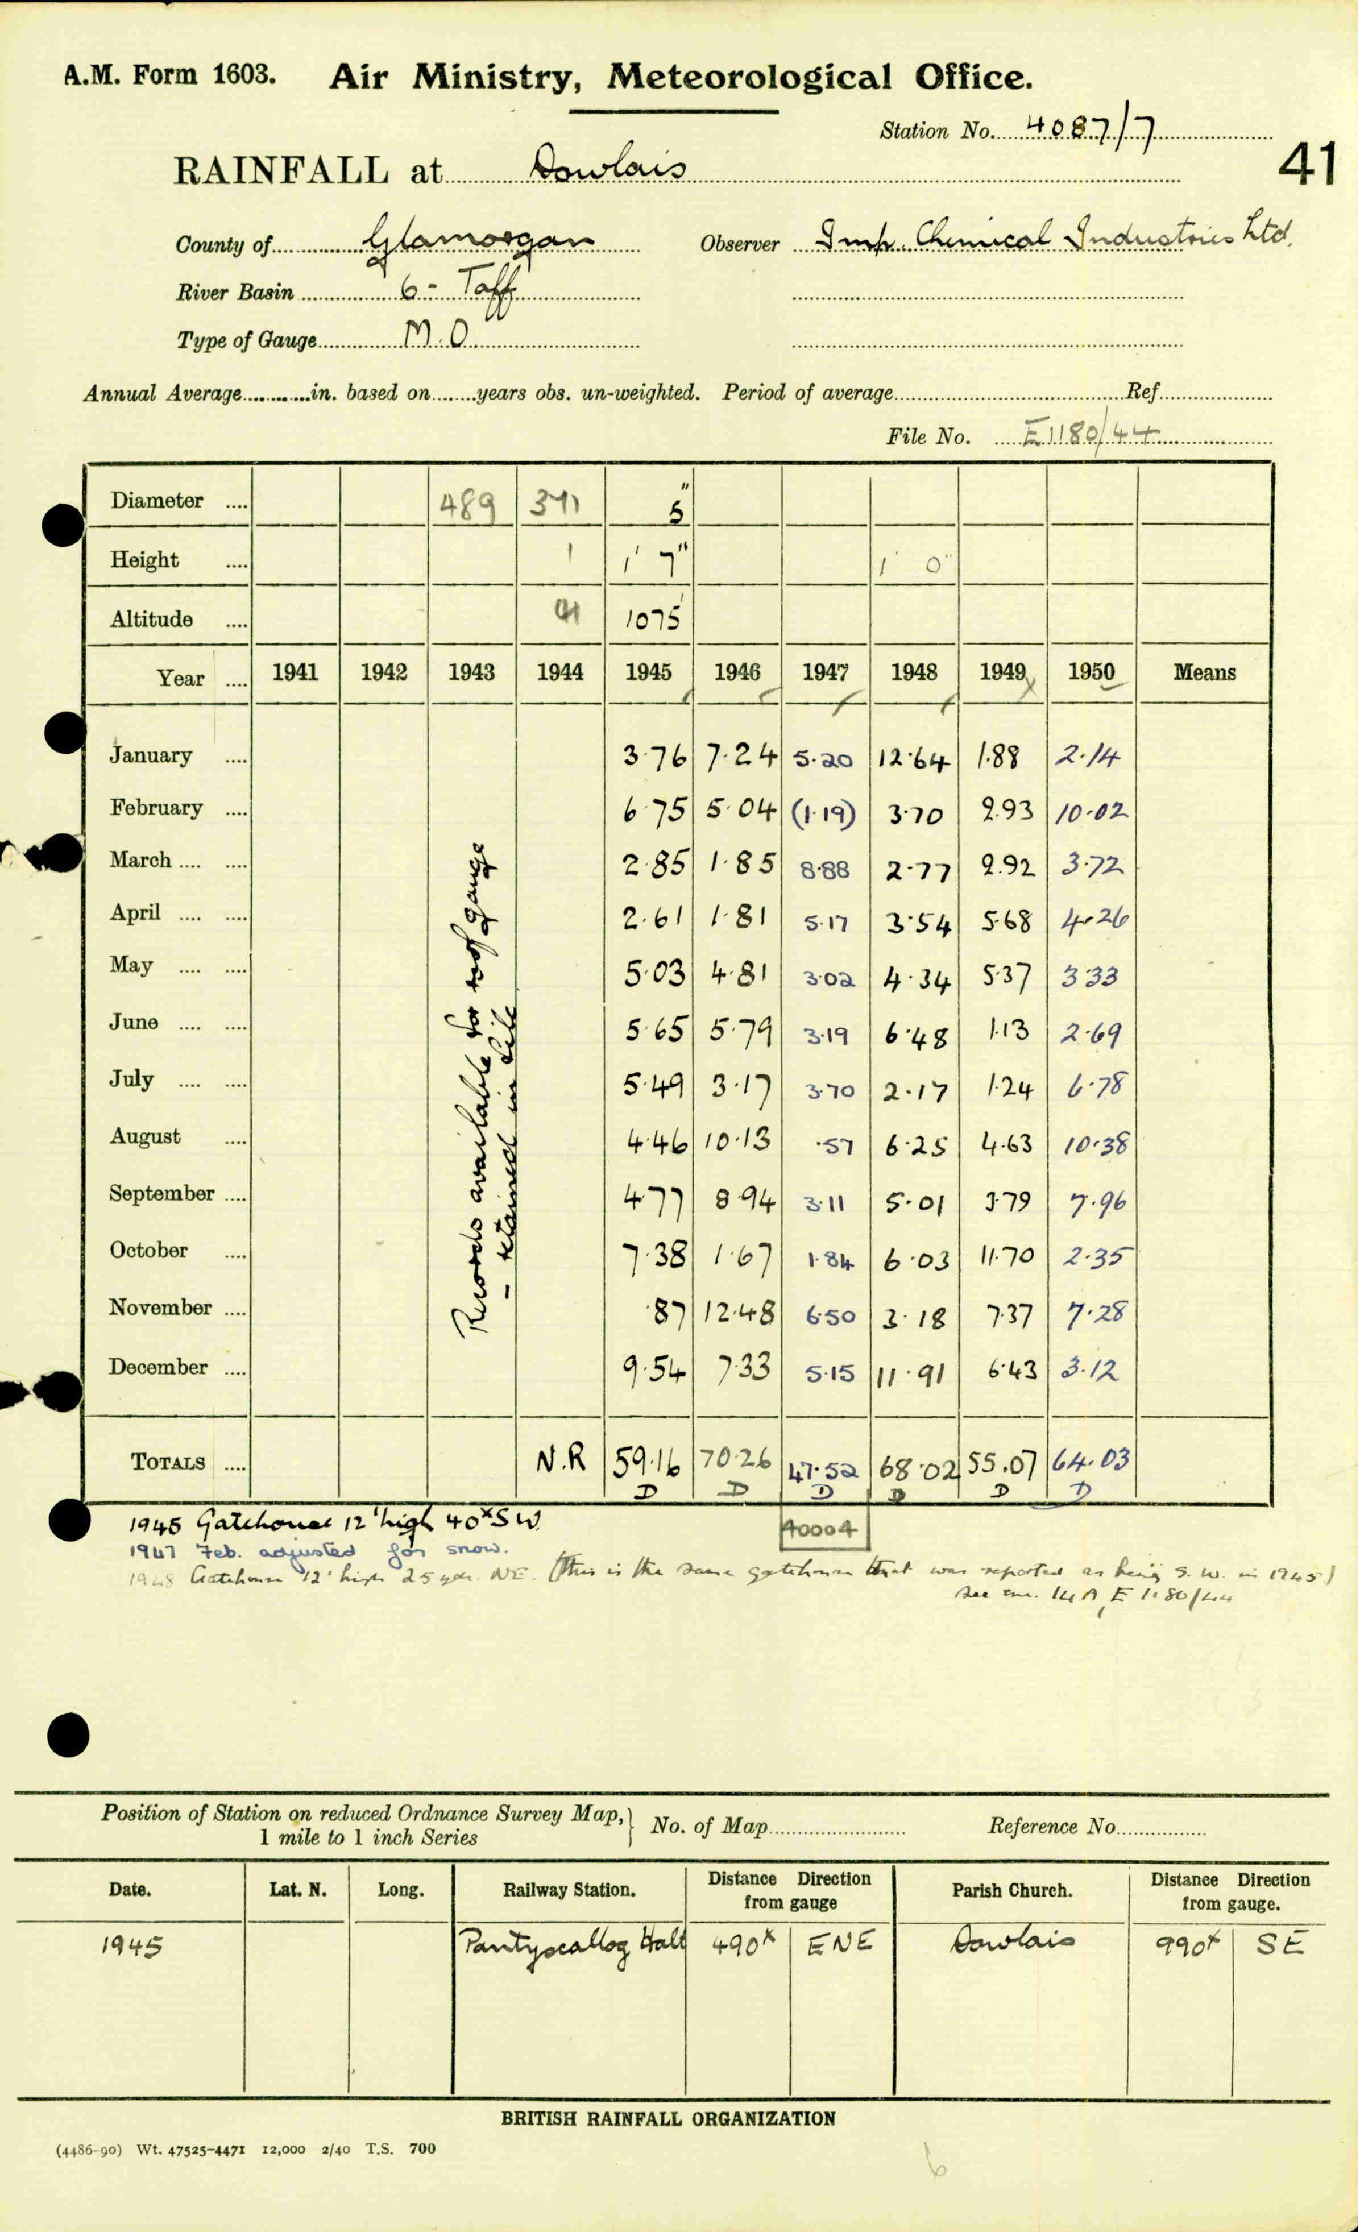 A.M. Form 1603. Air Ministry, Meteorological Office.
Station No. 4087/7
41
RAINFALL at Dowlais
County of Glamorgan Observer Imp. Chemical Industries Ltd.
River Basin 6 - Taff
Type of Gauge M.O.
Annual Average............in. based on........years obs. un-weighted. Period of average........Ref........
File No. E1180/44
Diameter .... 489 371 5"
Height .... 1 1' 7" 1' 0"
Altitude .... 1075'
Year .... 1941 1942 1943 1944 1945 1946 1947 1948 1949 1950 Means
January .... 3.76 7.24 5.20 12.64 1.88 2.14
February .... 6.75 5.04 (1.19) 3.70 2.93 10.02
March .... .... 2.85 1.85 8.88 2.77 2.92 3.72
April .... .... 2.61 1.81 5.17 3.54 5.68 4.26
May .... .... 5.03 4.81 3.02 4.34 5.37 3.33
June .... .... 5.65 5.79 3.19 6.48 1.13 2.69
July .... .... 5.49 3.17 3.70 2.17 1.24 6.78
August .... 4.46 10.13 .57 6.25 4.63 10.38
September .... 4.77 8.94 3.11 5.01 3.79 7.96
October .... 7.38 1.67 1.84 6.03 11.70 2.35
November .... .87 12.48 6.50 3.18 7.37 7.28
December .... 9.54 7.33 5.15 11.91 6.43 3.12
Records available for roof gauge
- retained in file
TOTALS .... N.R 59.16 70.26 47.52 68.02 55.07 64.03
D D D D D D
40004
1945 Gatehouse 12' high 40x SW
1947 Feb. adjusted for snow.
1948 Gatehouse 12' high 25 yds. NE. (this is the same gatehouse that was reported as being S.W. in 1945)
see enc. 14A, E 1180/44
Position of Station on reduced Ordnance Survey Map,} No. of Map........ Reference No........
1 mile to 1 inch Series
Date. Lat. N. Long. Railway Station. Distance Direction from gauge Parish Church. Distance Direction from gauge.
1945 Pantyscallog Halt 490x ENE Dowlais 990x SE
BRITISH RAINFALL ORGANIZATION
(4486-90) Wt. 47525-4471 12,000 2/40 T.S. 700
6